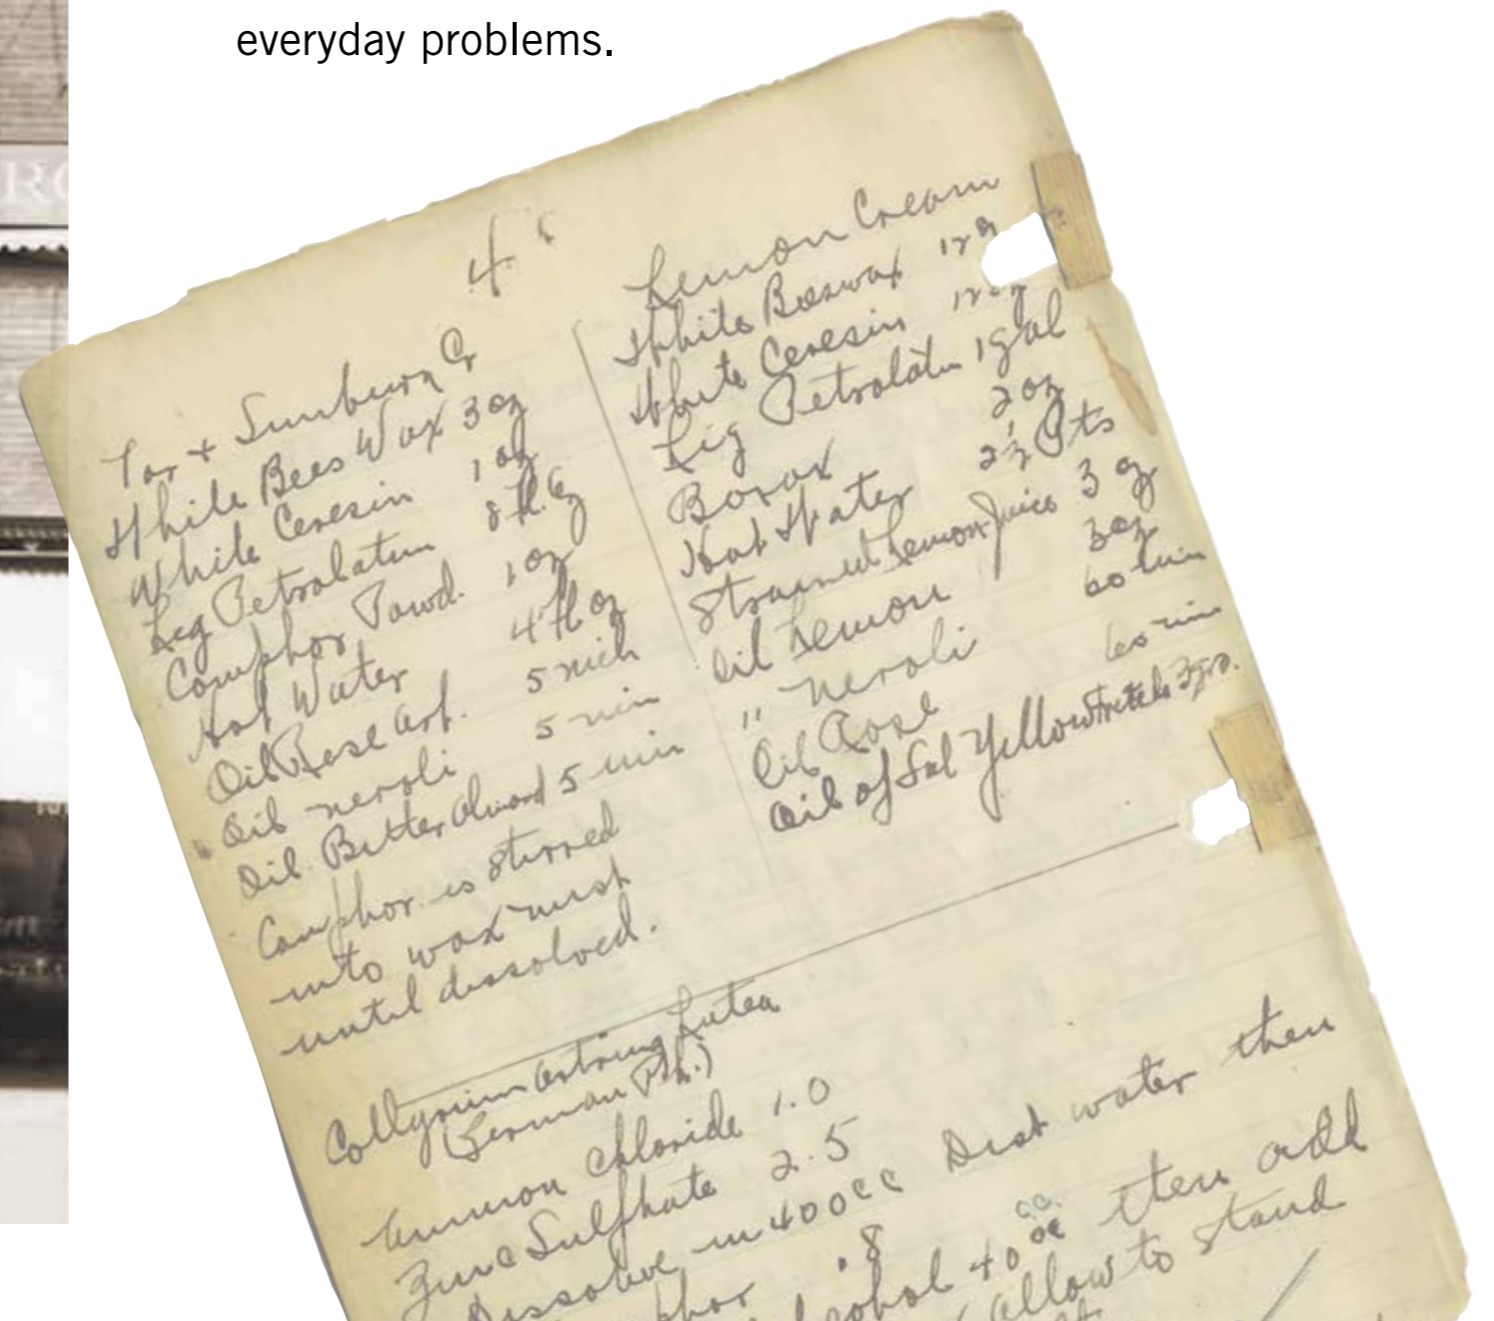 everyday problems.
RO
4
Tar + Sunburn Cr
White Bees Wax 3 oz
White Ceresin 1 oz
Liq Petrolatum 8 fl. oz
Camphor Powd. 1 oz
Hot Water 4 fl oz
Oil Rose Art. 5 min
Oil neroli 5 min
Oil Bitter Almond 5 min
Camphor is stirred
into wax
until dissolved.
Lemon Cream
White Beeswax 12
White Ceresin 12 oz
Liq Petrolatum 1 gal
Borax 2 oz
Hot Water 2½ Pts
Strained Lemon Juice 3 oz
Oil Lemon 3 oz
" Neroli 60 min
Oil Rose 60 min
Oil of Sol Yellow 3 grs.
Collyrium Astring Lutea
(German Ph.)
Ammon Chloride 1.0
Zinc Sulphate 2.5
Dissolve in 400 cc Dist water then
.8
40 cc then add
allow to stand